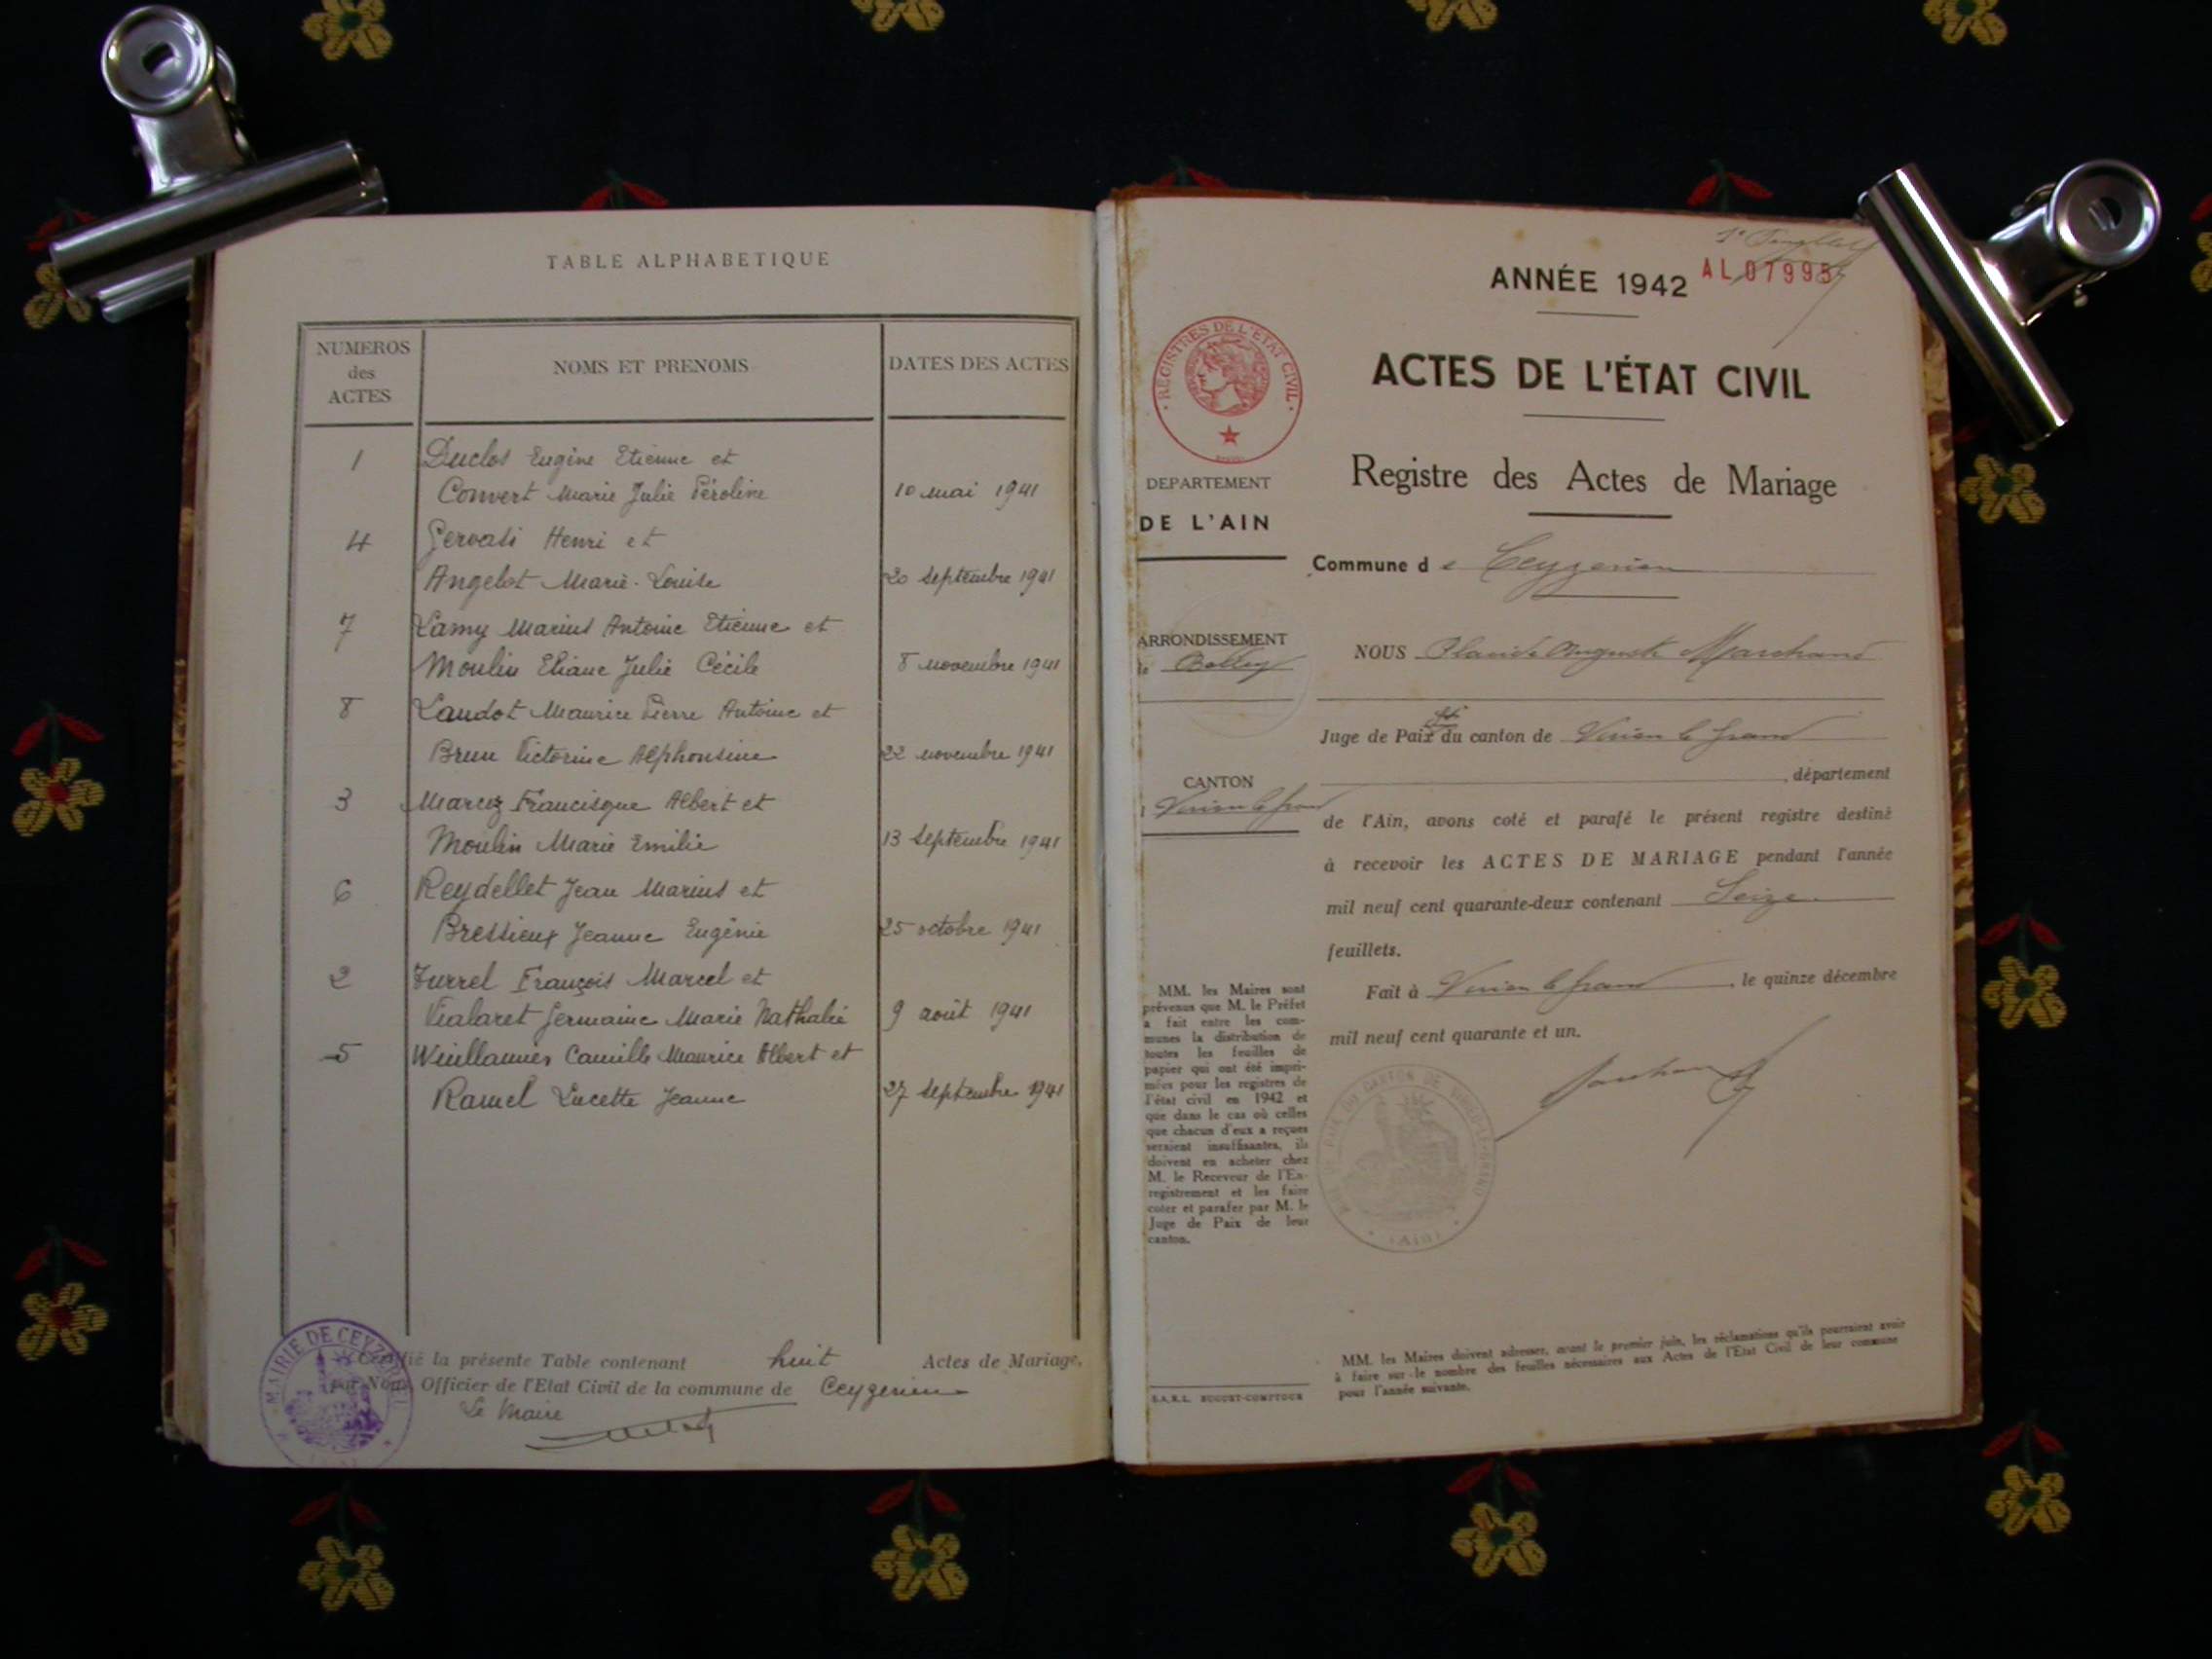 TABLE ALPHABETIQUE
NUMEROS
des
ACTES
NOMS ET PRENOMS
DATES DES ACTES
1 Duclos Eugène Etienne et
Convert Marie Julie Péroline 10 mai 1941
4 Gervasi Henri et
Angelot Marie-Louise 20 septembre 1941
7 Lamy Marius Antoine Etienne et
Moulin Eliane Julie Cécile 8 novembre 1941
8 Landot Maurice Pierre Antoine et
Brun Victorine Alphonsine 22 novembre 1941
3 Francisque Albert et
Moulin Marie Emilie 13 septembre 1941
6 Reydellet Jean Marius et
Bressieux Jeanne Eugénie 25 octobre 1941
2 Turrel François Marcel et
Vialaret Germaine Marie Nathalie 9 août 1941
5 Camille Maurice Albert et
Ramel Lucette Jeanne 27 septembre 1941
Certifié la présente Table contenant huit Actes de Mariage,
par Nous Officier de l'Etat Civil de la commune de Ceyzerieu
Le Maire
MAIRIE DE CEYZERIEU
ANNÉE 1942
AL 07995
REGISTRES DE L'ETAT CIVIL
ACTES DE L'ÉTAT CIVIL
Registre des Actes de Mariage
DEPARTEMENT
DE L'AIN
Commune de Ceyzerieu
ARRONDISSEMENT
de Belley
NOUS Auguste Marchand
Juge de Paix du canton de Virieu le Grand
, département
CANTON
Virieu le Grand
de l'Ain, avons coté et parafé le présent registre destiné
à recevoir les ACTES DE MARIAGE pendant l'année
mil neuf cent quarante-deux contenant Seize
feuillets.
Fait à Virieu le Grand, le quinze décembre
mil neuf cent quarante et un.
MM. les Maires sont
prévenus que M. le Préfet
a fait entre les com-
munes la distribution de
toutes les feuilles de
papier qui ont été impri-
mées pour les registres de
l'état civil en 1942 et
que dans le cas où celles
que chacun d'eux a reçues
seraient insuffisantes, ils
doivent en acheter chez
M. le Receveur de l'En-
registrement et les faire
coter et parafer par M. le
Juge de Paix de leur
canton.
DU CANTON DE VIRIEU-LE-GRAND
(Ain)
MM. les Maires doivent adresser, avant le premier juin, les réclamations qu'ils pourraient avoir
à faire sur le nombre des feuilles nécessaires aux Actes de l'Etat Civil de leur commune
pour l'année suivante.
S.A.R.L.